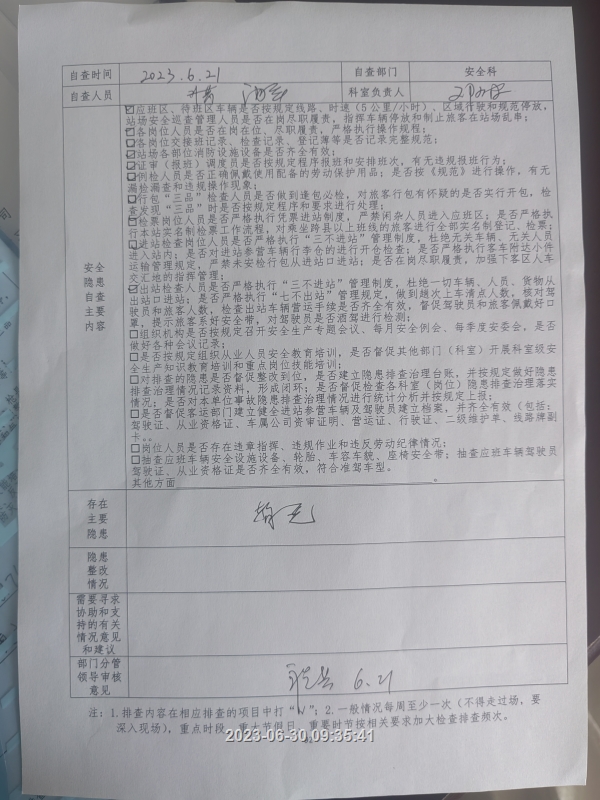 自查时间 2023.6.21 自查部门 安全科
自查人员 科室负责人
☑应班区、待班区车辆是否按规定线路、时速(5公里/小时)、区域行驶和规范停放,
站场安全巡查管理人员是否在岗尽职履责,指挥车辆停放和制止旅客在站场乱串;
☑各岗位人员是否在岗在位、尽职履责,严格执行操作规程;
☑各岗位交接班记录、检查记录、登记薄等是否记录完整规范;
☑站场各部位消防设施设备是否齐全有效;
☑证审(报班)调度员是否按规定程序报班和安排班次,有无违规报班行为;
☑例检人员是否正确佩戴使用配备的劳动保护用品;是否按《规范》进行操作,有无
漏检漏查和违规操作现象;
☑行包“三品”检查人员是否做到逢包必检,对旅客行包有怀疑的是否实行开包,检
查发现“三品”时是否按规定程序和要求进行处理;
☑检票岗位人员是否严格执行凭票进站制度,严禁闲杂人员进入应班区;是否严格执
行本站实名制检票工作流程,对乘坐跨县以上班线的旅客进行全部实名制登记、检票;
☑进站检查岗位人员是否严格执行“三不进站”管理制度,杜绝无关车辆、无关人员
进入站内;是否对进站参营车辆行李仓的进行开仓检查;是否严格执行客车附达小件
运输管理规定,严禁未安检行包从进站口进站;是否在岗尽职履责,加强下客区人车
交汇地的指挥管理;
☑出站检查人员是否严格执行“三不进站”管理制度,杜绝一切车辆、人员、货物从
出站口进站;是否严格执行“七不出站”管理规定,做到趟次上车清点人数,核对驾
驶员和旅客人数,检查出站车辆营运手续是否齐全有效,督促驾驶员和旅客佩戴好口
罩,提示旅客系好安全带,对驾驶员是否酒驾进行检测;
☐组织机构是否按规定召开安全生产专题会议、每月安全例会、每季度安委会,是否
做好各种会议记录;
☐是否按规定组织从业人员安全教育培训,是否督促其他部门(科室)开展科室级安
全生产知识教育培训和重点岗位技能培训;
☐对排查的隐患是否督促整改到位,是否建立隐患排查治理台账,并按规定做好隐患
排查治理情况记录资料,形成闭环;是否督促检查各科室(岗位)隐患排查治理落实
情况;是否对本单位事故隐患排查治理情况进行统计分析并按规定上报;
☐是否督促客运部门建立健全进站参营车辆及驾驶员建立档案,并齐全有效(包括:
驾驶证、从业资格证、车属公司资审证明、营运证、行驶证、二级维护单、线路牌副
卡。。
☐岗位人员是否存在违章指挥、违规作业和违反劳动纪律情况;
☐抽查应班车辆安全设施设备、轮胎、车容车貌、座椅安全带;抽查应班车辆驾驶员
驾驶证、从业资格证是否齐全有效,符合准驾车型。
其他方面
安全
隐患
自查
主要
内容
存在
主要
隐患
隐患
整改
情况
需要寻求
协助和支
持的有关
情况意见
和建议
部门分管
领导审核
意见
6.21
注:1.排查内容在相应排查的项目中打“√”;2.一般情况每周至少一次(不得走过场,要
深入现场),重点时段、重大节假日、重要时节按相关要求加大检查排查频次。
2023-06-30 09:35:41